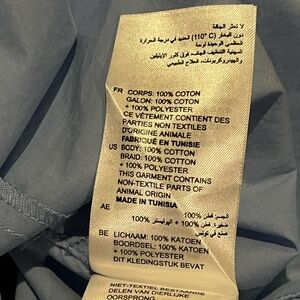 دون البخار (110° C) الحديد في درجة الحرارة
FR CORPS: 100% COTON
GALON: 100% COTON
+ 100% POLYESTER
CE VÊTEMENT CONTIENT DES
PARTIES NON TEXTILES
D'ORIGINE ANIMALE
FABRIQUÉ EN TUNISIE
US BODY: 100% COTTON
BRAID: 100% COTTON
+ 100% POLYESTER
THIS GARMENT CONTAINS
NON-TEXTILE PARTS OF
ANIMAL ORIGIN
MADE IN TUNISIA
AE الجسم: قطن 100%
ضفيرة: قطن 100% + البوليستر 100%
صنع في تونس
BE LICHAAM: 100% KATOEN
BOORDSEL: 100% KATOEN
+ 100% POLYESTER
DIT KLEDINGSTUK BEVAT
NIET-TEXTIEL BESTAANDE
DELEN VAN DIERLIJKE
OORSPRONG